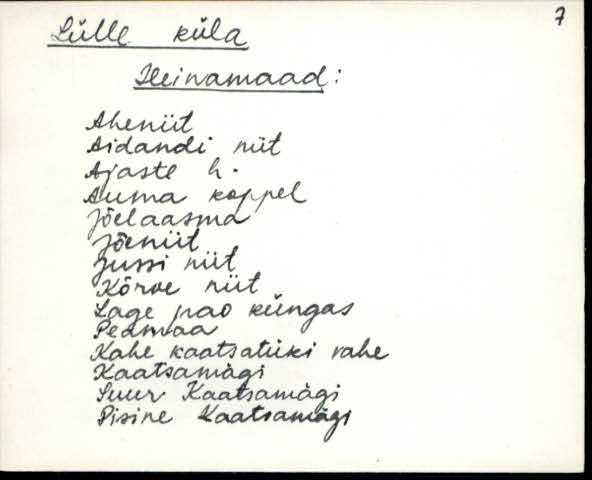 7
Lülle küla
Heinamaad:
Aheniit
Aidandi niit
Ajaste h.
Auma koppel
Jõelaasma
Jõeniit
Jussi niit
Kõrve niit
Lage pao küngas
Peamaa
Kahe kaatsatüki vahe
Kaatsamägi
Suur Kaatsamägi
Pisine Kaatsamägi